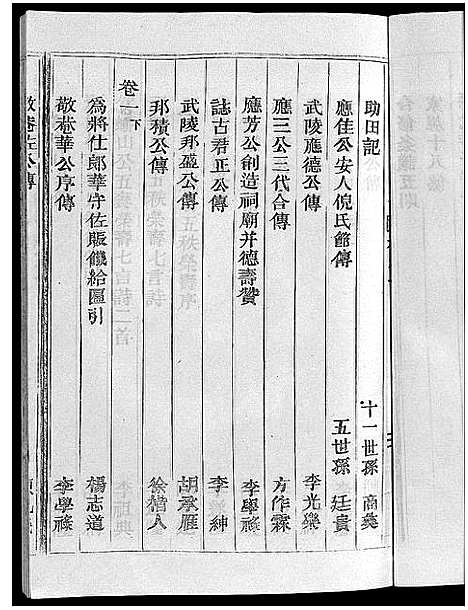 助田記 十一世孫 商彝
應佳公安人倪氏節傳 五世孫 廷貴
武陵應德公傳 李光樂
應三公三代合傳 方作霖
應芳公創造祠廟并德壽贊 李學祿
誌古君正公傳 李紳
武陵邦盈公傳 胡承雁
邦積公傳 徐楷人
卷一下
為將仕郎華守佐賑饑給匾引 楊志道
敬菴華公序傳 李學祿
敬菴左公傳